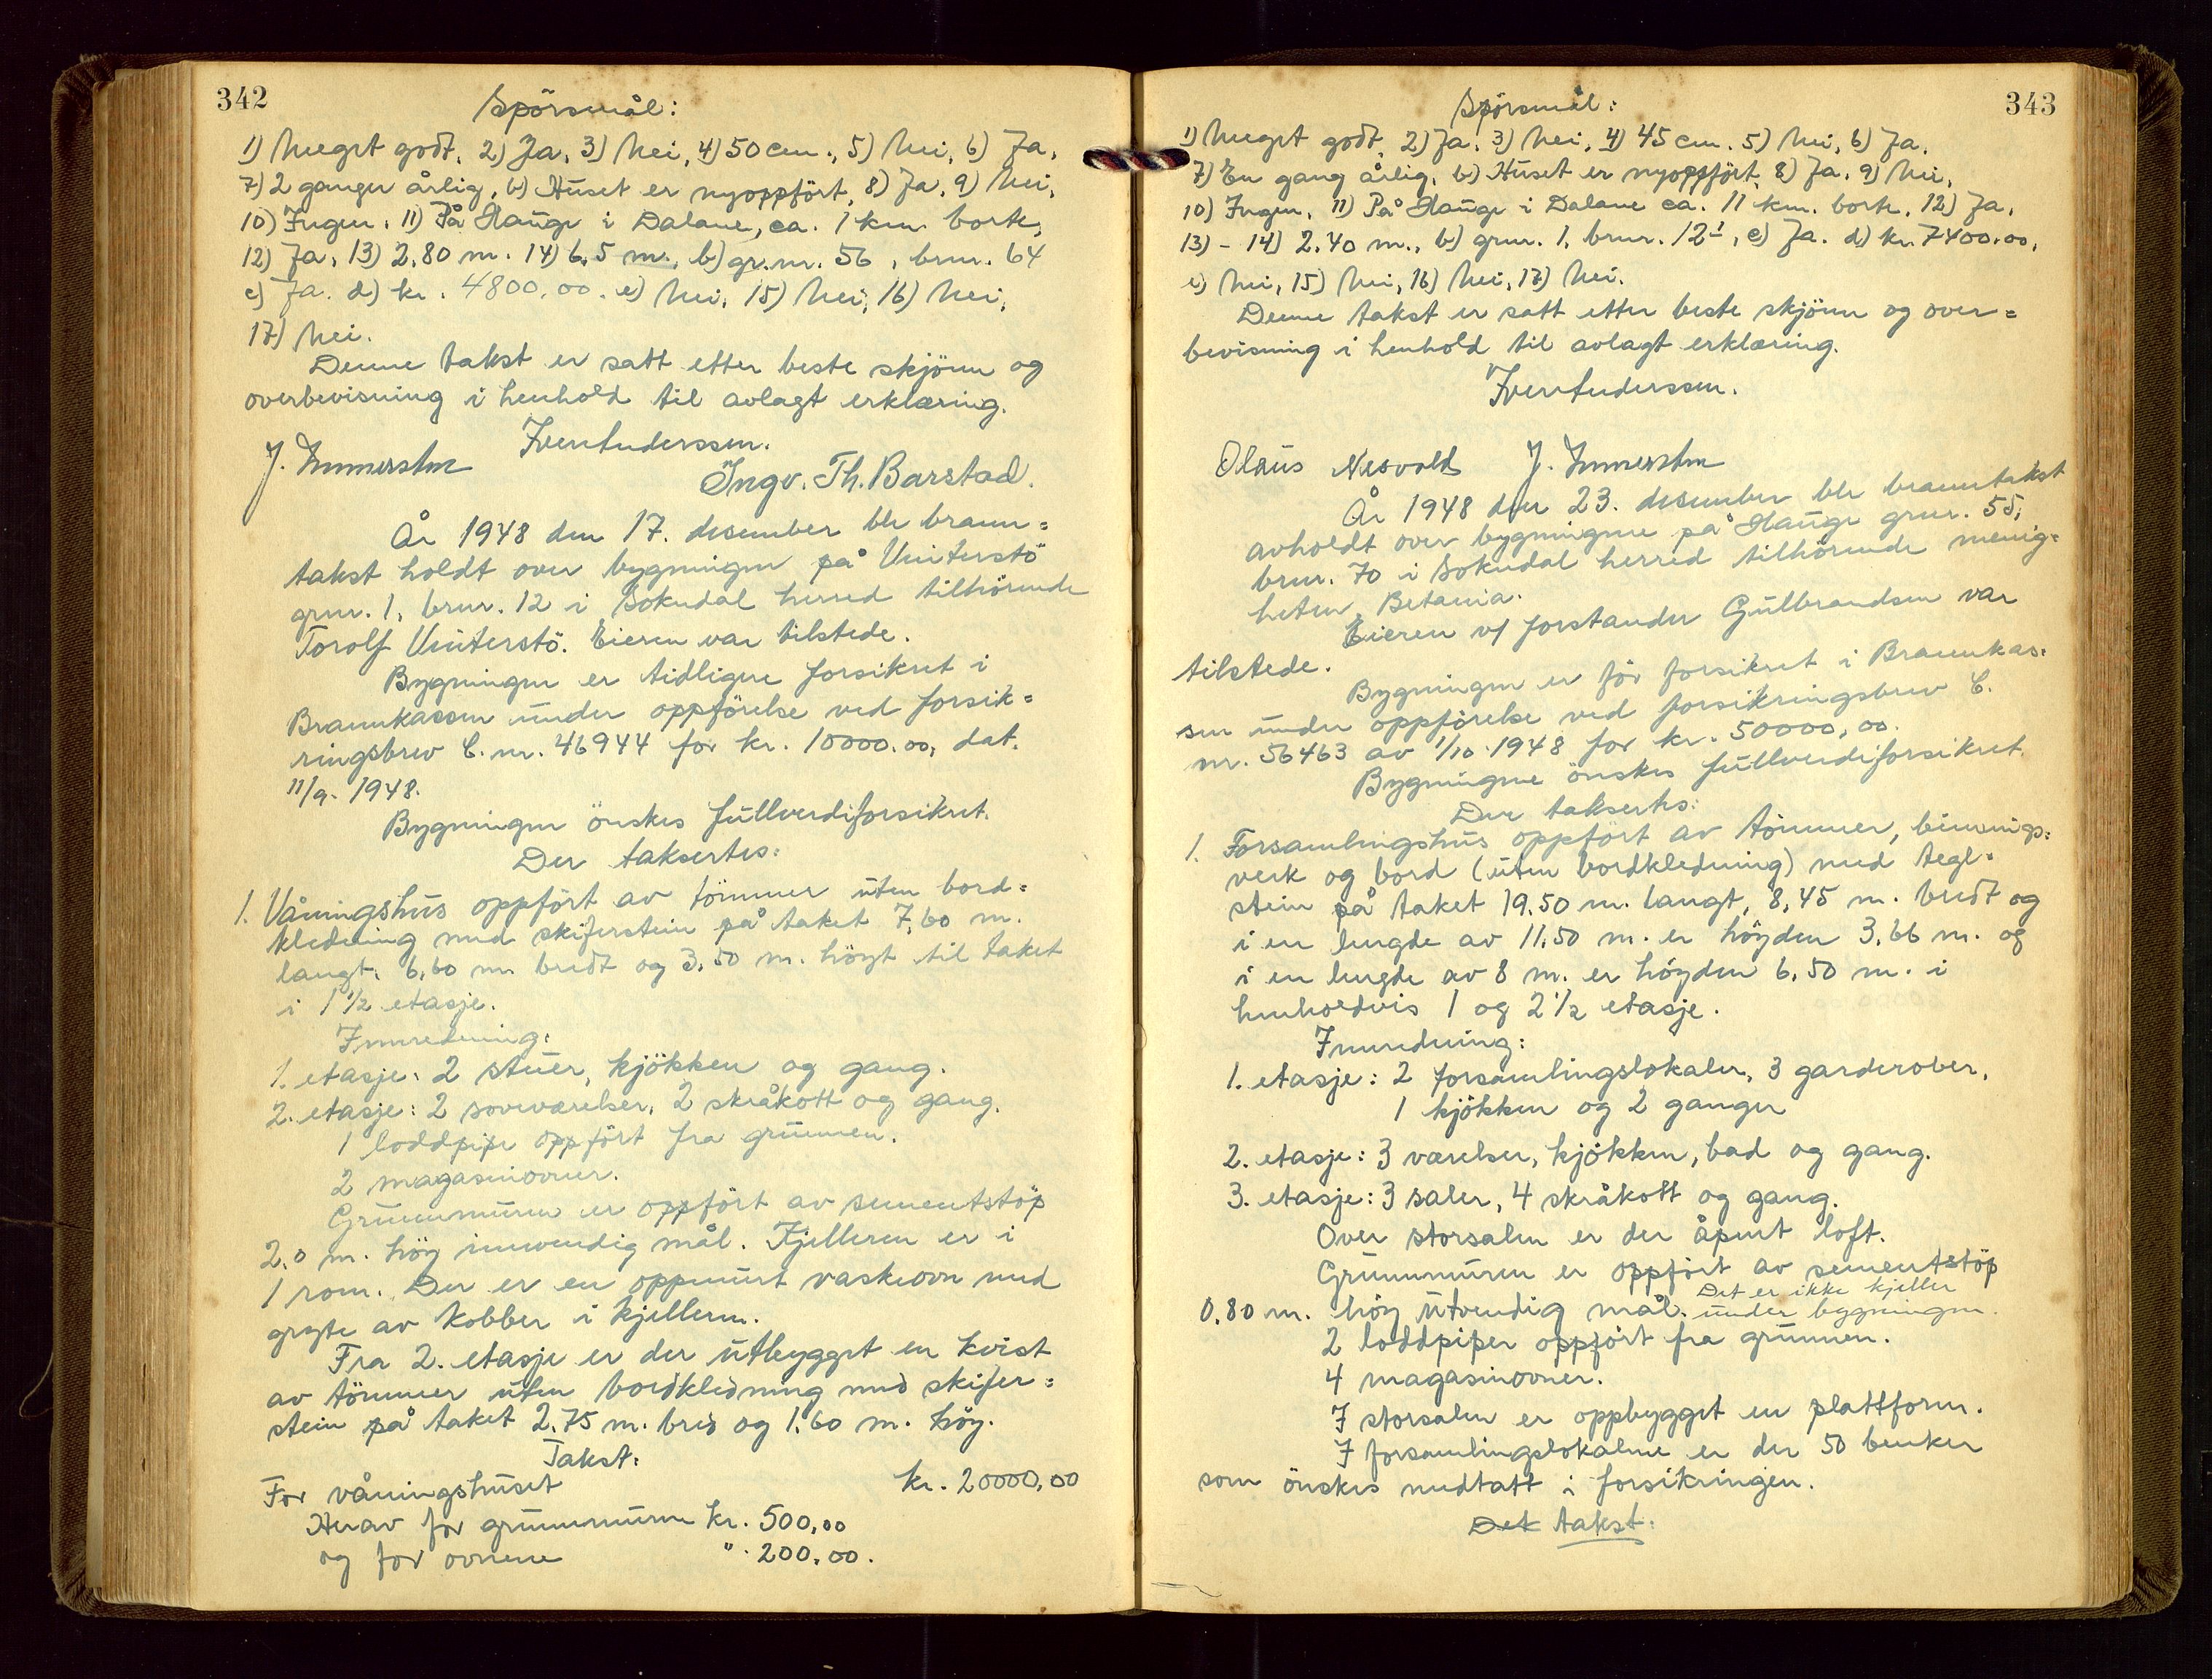 342
Spörsmål:
1) Meget godt, 2) Ja, 3) Nei, 4) 50 cm., 5) Nei, 6) Ja,
7) 2 ganger årlig, b) Huset er nyoppfört, 8) Ja, 9) Nei,
10) Ingen, 11) På Hauge i Dalane, ca. 1 km borte,
12) Ja, 13) 2,80 m. 14) 6,5 m., b) gr.nr. 56, brnr. 64
c) Ja. d) kr. 4800,00. e) Nei, 15) Nei, 16) Nei,
17) Nei.
Denne takst er satt etter beste skjönn og
overbevisning i henhold til avlagt erklæring.
Iver Anderssen.
J. Immerstein
Ingv. Th. Barstad.
År 1948 den 17. desember ble brann=
takst holdt over bygningen på Uniterstö
grnr. 1, brnr. 12 i Sokndal herred tilhörende
Torolf Uniterstö. Eieren var tilstede.
Bygningen er tidligere forsikret i
Brannkassen under oppförelse ved forsik=
ringsbrev C. nr. 46944 for kr. 10000.00, dat.
11/9. 1948.
Bygningen önskes fullverdiforsikret.
Der taksertes:
1. Våningshus oppfört av tömmer uten bord=
kledning med skiferstein på taket 7,60 m.
langt, 6,60 m. bredt og 3,50 m. höyt til taket
i 1 1/2 etasje.
Innredning:
1. etasje: 2 stuer, kjökken og gang.
2. etasje: 2 soveværelser, 2 skråkott og gang.
1 loddpipe oppfört fra grunnen.
2 magasinovner.
Grunnmuren er oppfört av sementstöp
2,0 m. höy innvendig mål. Kjelleren er i
1 rom. Der er en oppmurt vaskeovn med
gryte av kobber i kjelleren.
Fra 2. etasje er der utbygget en kvist
av tömmer uten bordkledning med skifer=
stein på taket 2.75 m. bred og 1,60 m. höy.
Takst:
For våningshuset kr. 20000,00
Herav for grunnmuren kr. 500,00
og for ovnene " 200,00.
343
Spörsmål:
1) Meget godt, 2) Ja. 3) Nei, 4) 45 cm. 5) Nei, 6) Ja.
7) En gang årlig, b) Huset er nyoppfört, 8) Ja. 9) Nei,
10) Ingen, 11) På Hauge i Dalane ca. 11 km. borte, 12) Ja,
13) - 14) 2.40 m., b) grnr. 1, brnr. 12 1, c) Ja. d) kr. 7400.00,
e) Nei, 15) Nei, 16) Nei, 17) Nei.
Denne takst er satt etter beste skjönn og over=
bevisning i henhold til avlagt erklæring.
Iver Anderssen.
Olaus Nesvold J. Immerstein
År 1948 den 23. desember ble branntakst
avholdt over bygningene på Hauge grnr. 55,
brnr. 70 i Sokndal herred tilhörende menig=
heten, Betania.
Eieren v/ forstander Gulbrandsen var
tilstede.
Bygningen er för forsikret i Brannkas=
sen under oppförelse ved forsikringsbrev C.
nr. 56463 av 1/10 1948 for kr. 50000,00.
Bygningene önskes fullverdiforsikret.
Der taksertes:
1. Forsamlingshus oppfört av tömmer, binnings=
verk og bord (uten bordkledning) med tegl=
stein på taket 19.50 m. langt, 8,45 m. bredt og
i en lengde av 11,50 m. er höyden 3,66 m. og
i en lengde av 8 m. er höyden 6,50 m. i
henholdvis 1 og 2 1/2 etasje.
Innredning:
1. etasje: 2 forsamlingslokaler, 3 garderober,
1 kjökken og 2 ganger
2. etasje: 3 værelser, kjökken, bad og gang.
3. etasje: 3 saler, 4 skråkott og gang.
Over storsalen er der åpent loft.
Grunnmuren er oppfört av sementstöp
0,80 m. höy utvendig mål. Det er ikke kjeller under bygningen.
2 loddpiper oppfört fra grunnen.
4 magasinovner.
I storsalen er oppbygget en plattform.
I forsamlingslokalene er der 50 benker
som önskes medtatt i forsikringen.
Det takst: